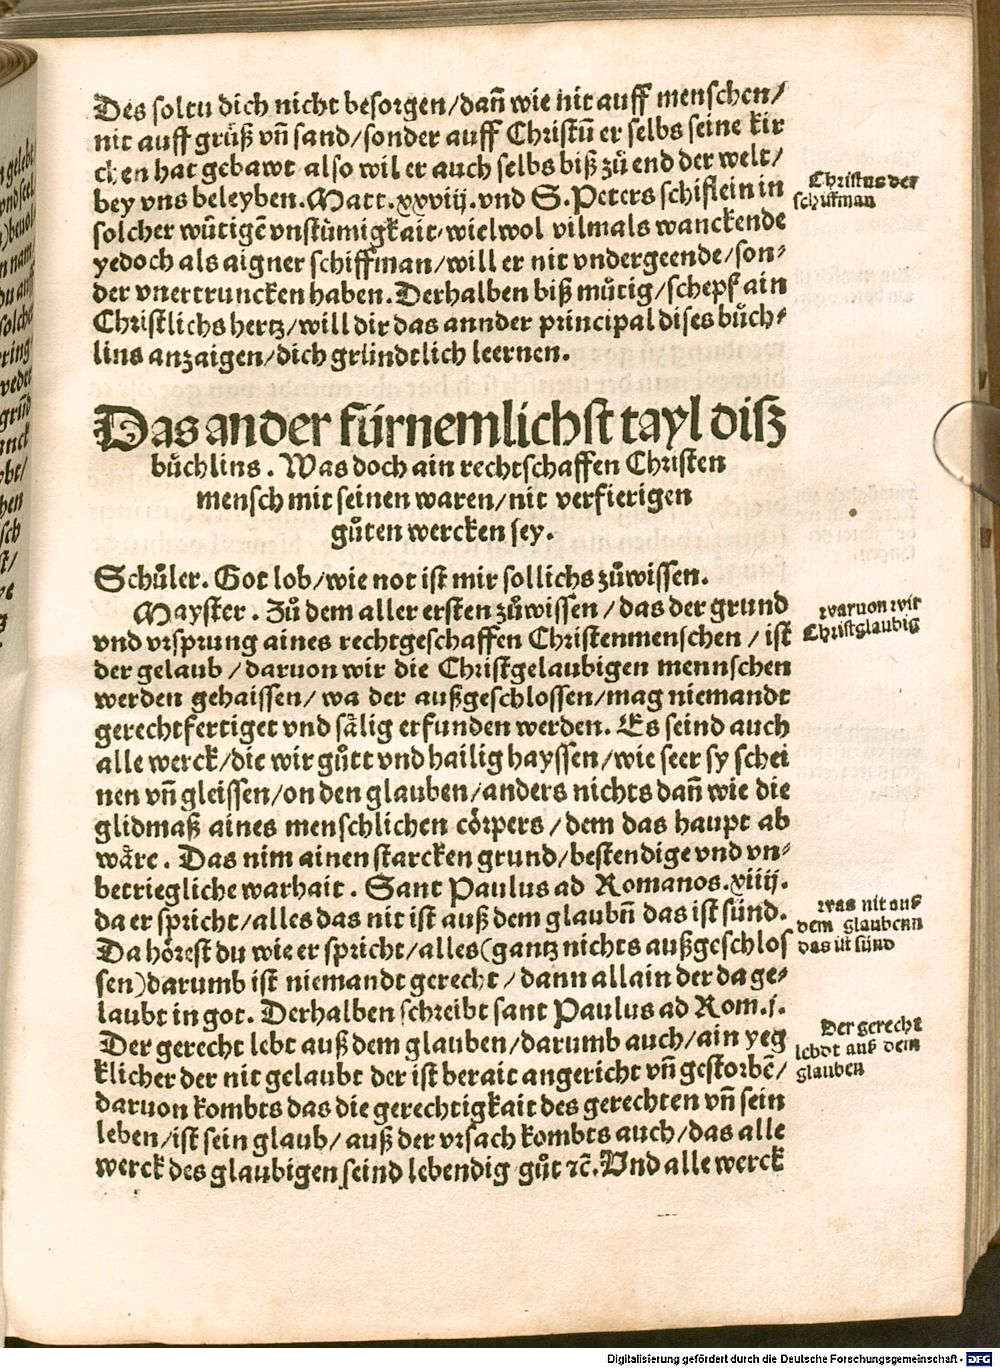 Des soltu dich nicht besorgen/dañ wie nit auff menschen/
nit auff grüß vñ sand/sonder auff Christũ er selbs seine kir
chen hat gebawt also wil er auch selbs biß zů end der welt/
bey vns beleyben.Matt.xxviij.vnd S.Peters schiflein in
Christus der
schifman
solcher wůtigẽ vnstůmigkait/wielwol vilmals wanckende
yedoch als aigner schiffman/will er nit vndergeende/son-
der vnertruncken haben.Derhalben biß můtig/schepf ain
Christlichs hertz/will dir das annder principal dises bůch-
lins anzaigen/dich gründtlich leernen.
Das ander fürnemlichst tayl diß
bůchlins. Was doch ain rechtschaffen Christen
mensch mit seinen waren/nit verfierigen
gůten wercken sey.
Schůler. Got lob/wie not ist mir sollichs zůwissen.
Mayster. Zů dem aller ersten zůwissen/das der grund
waruon wir
Christglaubig
vnd vrsprung aines rechtgeschaffen Christenmenschen/ist
der gelaub/daruon wir die Christgelaubigen mennschen
werden gehaissen/wa der außgeschlossen/mag niemandt
gerechtfertiget vnd sälig erfunden werden. Es seind auch
alle werck/die wir gůtt vnd hailig hayssen/wie seer sy schei
nen vñ gleissen/on den glauben/anders nichts dañ wie die
glidmaß aines menschlichen cörpers/dem das haupt ab
wäre. Das nim ainen starcken grund/bestendige vnd vn-
betriegliche warhait. Sant Paulus ad Romanos.xiiij.
da er spricht/alles das nit ist auß dem glaubñ das ist sünd.
was nit aus
dem glaubenn
das ist sünd
Da hörest du wie er spricht/alles(gantz nichts außgeschlos
sen)darumb ist niemandt gerecht/dann allain der da ge-
laubt in got. Derhalben schreibt sant Paulus ad Rom.j.
Der gerecht lebt auß dem glauben/darumb auch/ain yeg
Der gerecht
lebdt auß dem
glauben
klicher der nit gelaubt der ist berait angericht vñ gestorbẽ/
daruon kombts das die gerechtigkait des gerechten vñ sein
leben/ist sein glaub/auß der vrsach kombts auch/das alle
werck des glaubigen seind lebendig gůt ꝛc̃.Vnd alle werck
Digitalisierung gefördert durch die Deutsche Forschungsgemeinschaft - DFG